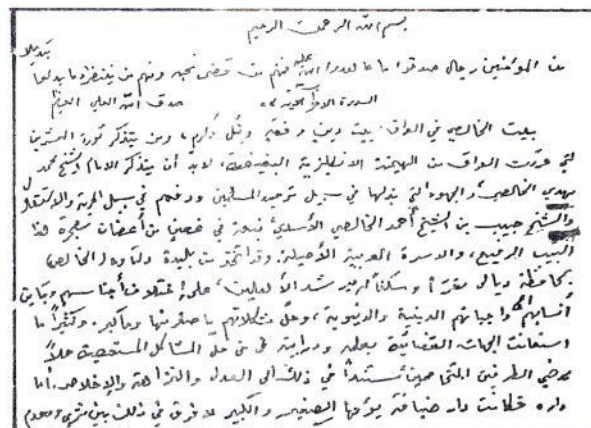 بسم الله الرحمن الرحيم
من المؤمنين رجال صدقوا ما عاهدوا الله عليه فمنهم من قضى نحبه ومنهم من ينتظر وما بدلوا تبديلا
صدق الله العلي العظيم
السورة الاحزاب آية
بيت الخالصي في العراق بيت دين وفقه وبكل دارم، ومن يتذكر ثورة العشرين
التي حررت العراق من الهيمنة الانكليزية البغيضة، لابد أن يتذكر الامام الشيخ محمد
مهدي الخالصي، والجهود التي بذلها في سبيل توحيد المسلمين ودفعهم في سبيل الحرية والاستقلال
والشيخ حبيب بن الشيخ أحمد الخالصي الأسدي، نبعة في غصن من أغصان شجرة هذا
البيت الرفيع، والاسرة العربية الأصيلة. وقد اتخذ من بليدة دلتاوه (الخالص)
بمحافظة ديالى مقرّاً وسكناً لإرشاد الأهلين، على اختلاف أجناسهم وتباين
أنسابهم واجباتهم الدينية والدنيوية، وحلّ مشكلاتهم صغيرها وكبير. وكثيراً ما
استعانت الجهات القضائية بعلمه ودرايته في حلّ المشاكل المستعصية حلاً
يرضي الطرفين المتخاصمين مستنداً في ذلك الى العدل والنزاهة والإخلاص. أما
داره فكانت دار ضيافة يؤمها الصغير والكبير لا فرق في ذلك بين مثري ومعدم